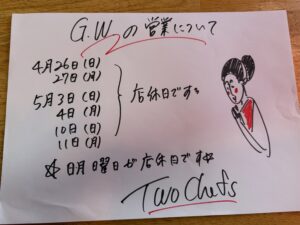 G.Wの営業について
4月26日(日)
27日(月)
5月3日(日)
4日(月)
10日(日)
11日(月)
店休日です
☆日月曜日が店休日です☆
Two Chefs